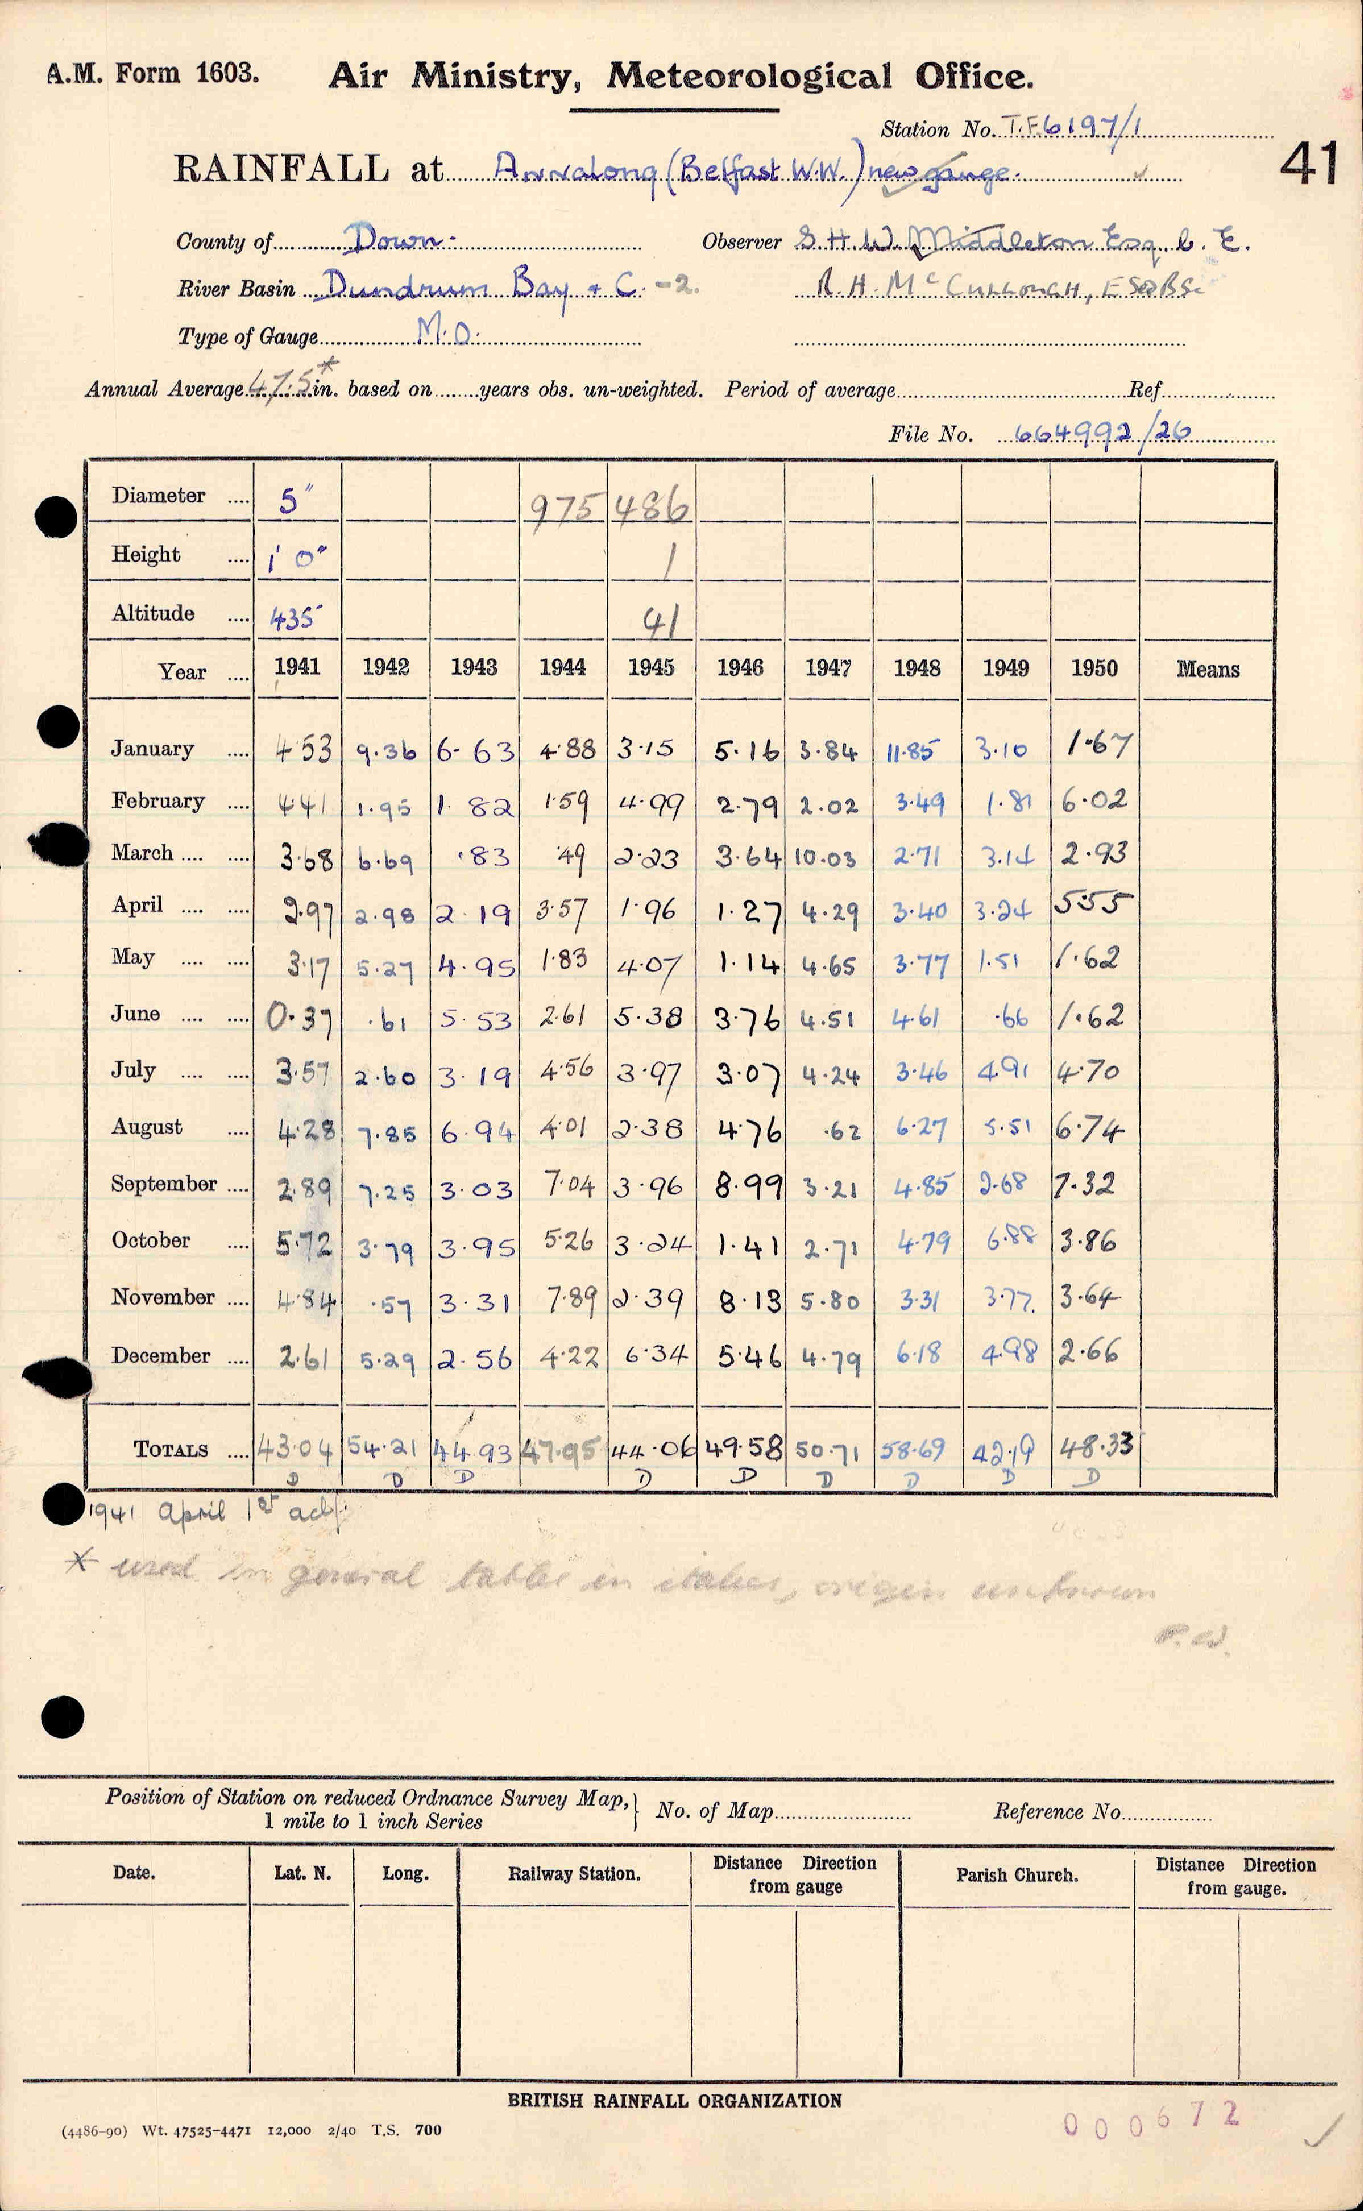 A.M. Form 1603. Air Ministry, Meteorological Office.
Station No. T.F.6197/1
41
RAINFALL at Annalong (Belfast W.W.) new gauge.
County of Down. Observer S.H.W. Middleton Esq C.E.
River Basin Dundrum Bay + C -2. R.H. McCULLOUGH, ESQ BSc
Type of Gauge M.O.
Annual Average 47.5* in. based on ........years obs. un-weighted. Period of average Ref.
File No. 664992/26
Diameter .... 5" 975 486
Height .... 1' 0" 1
Altitude .... 435 41
Year .... 1941 1942 1943 1944 1945 1946 1947 1948 1949 1950 Means
January .... 4.53 9.36 6.63 4.88 3.15 5.16 3.84 11.85 3.10 1.67
February .... 4.41 1.95 1.82 1.59 4.99 2.79 2.02 3.49 1.81 6.02
March .... .... 3.68 6.69 .83 .49 2.23 3.64 10.03 2.71 3.14 2.93
April .... .... 2.97 2.98 2.19 3.57 1.96 1.27 4.29 3.40 3.24 5.55
May .... .... 3.17 5.27 4.95 1.83 4.07 1.14 4.65 3.77 1.51 1.62
June .... .... 0.37 .61 5.53 2.61 5.38 3.76 4.51 4.61 .66 1.62
July .... .... 3.57 2.60 3.19 4.56 3.97 3.07 4.24 3.46 4.91 4.70
August .... 4.28 7.85 6.94 4.01 2.38 4.76 .62 6.27 5.51 6.74
September .... 2.89 7.25 3.03 7.04 3.96 8.99 3.21 4.85 2.68 7.32
October .... 5.72 3.79 3.95 5.26 3.24 1.41 2.71 4.79 6.88 3.86
November .... 4.84 .57 3.31 7.89 2.39 8.13 5.80 3.31 3.77. 3.64
December .... 2.61 5.29 2.56 4.22 6.34 5.46 4.79 6.18 4.98 2.66
TOTALS .... 43.04 54.21 44.93 47.95 44.06 49.58 50.71 58.69 42.19 48.33
D D D D D D D D D
1941 April 1st
* used in general tables in italics, origin unknown
P.W.
Position of Station on reduced Ordnance Survey Map,} No. of Map Reference No.
1 mile to 1 inch Series
Date. Lat. N. Long. Railway Station. Distance Direction from gauge Parish Church. Distance Direction from gauge.
BRITISH RAINFALL ORGANIZATION
(4486-90) Wt. 47525-4471 12,000 2/40 T.S. 700
000672